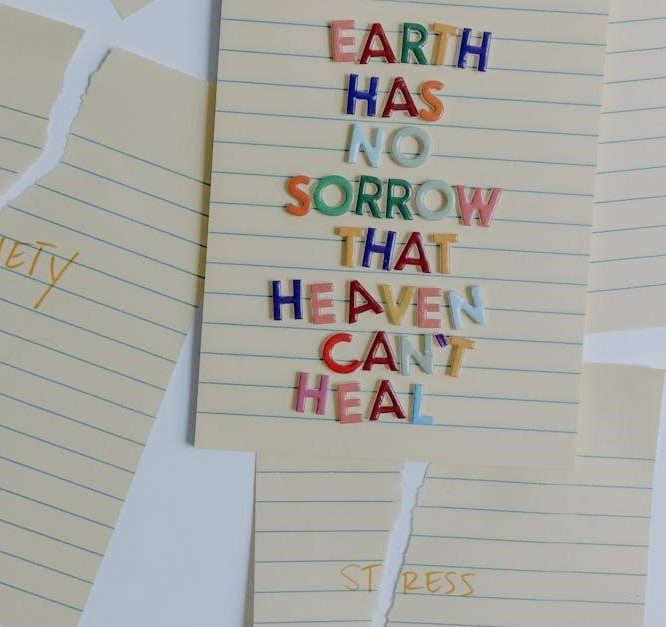 EARTH
HAS
NO
SORROW
THAT
HEAVEN
CAN'T
HEAL
IETY
STRESS